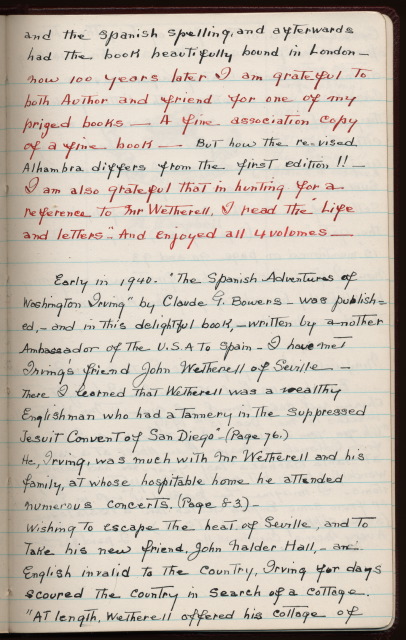 and the Spanish spelling, and afterwards
had the book beautifully bound in London —
now 100 years later I am grateful to
both Author and friend for one of my
prized books — A fine association copy
of a fine book — But how the re-vised
Alhambra differs from the first edition!! —
I am also grateful that in hunting for a
reference to Mr Wetherell, I read the "Life
and letters". And Enjoyed all 4 volumes —
Early in 1940. "The Spanish Adventures of
Washington Irving" by Claude G. Bowers — was publish=
ed, — and in this delightful book, — written by another
Ambassador of the U.S.A to Spain — I have met
Irvings friend John Wetherell of Seville —
There I learned that Wetherell was a wealthy
Englishman who had a Tannery in the suppressed
Jesuit Convent of San Diego" — (Page 76.)
He, Irving, was much with Mr Wetherell and his
family, at whose hospitable home he attended
numerous concerts. (Page 83) —
Wishing to escape the heat of Seville, and to
take his new friend, John Nalder Hall, — an
English invalid to the country, Irving for days
scoured the country in search of a cottage.
"At length, Wetherell offered his cottage of